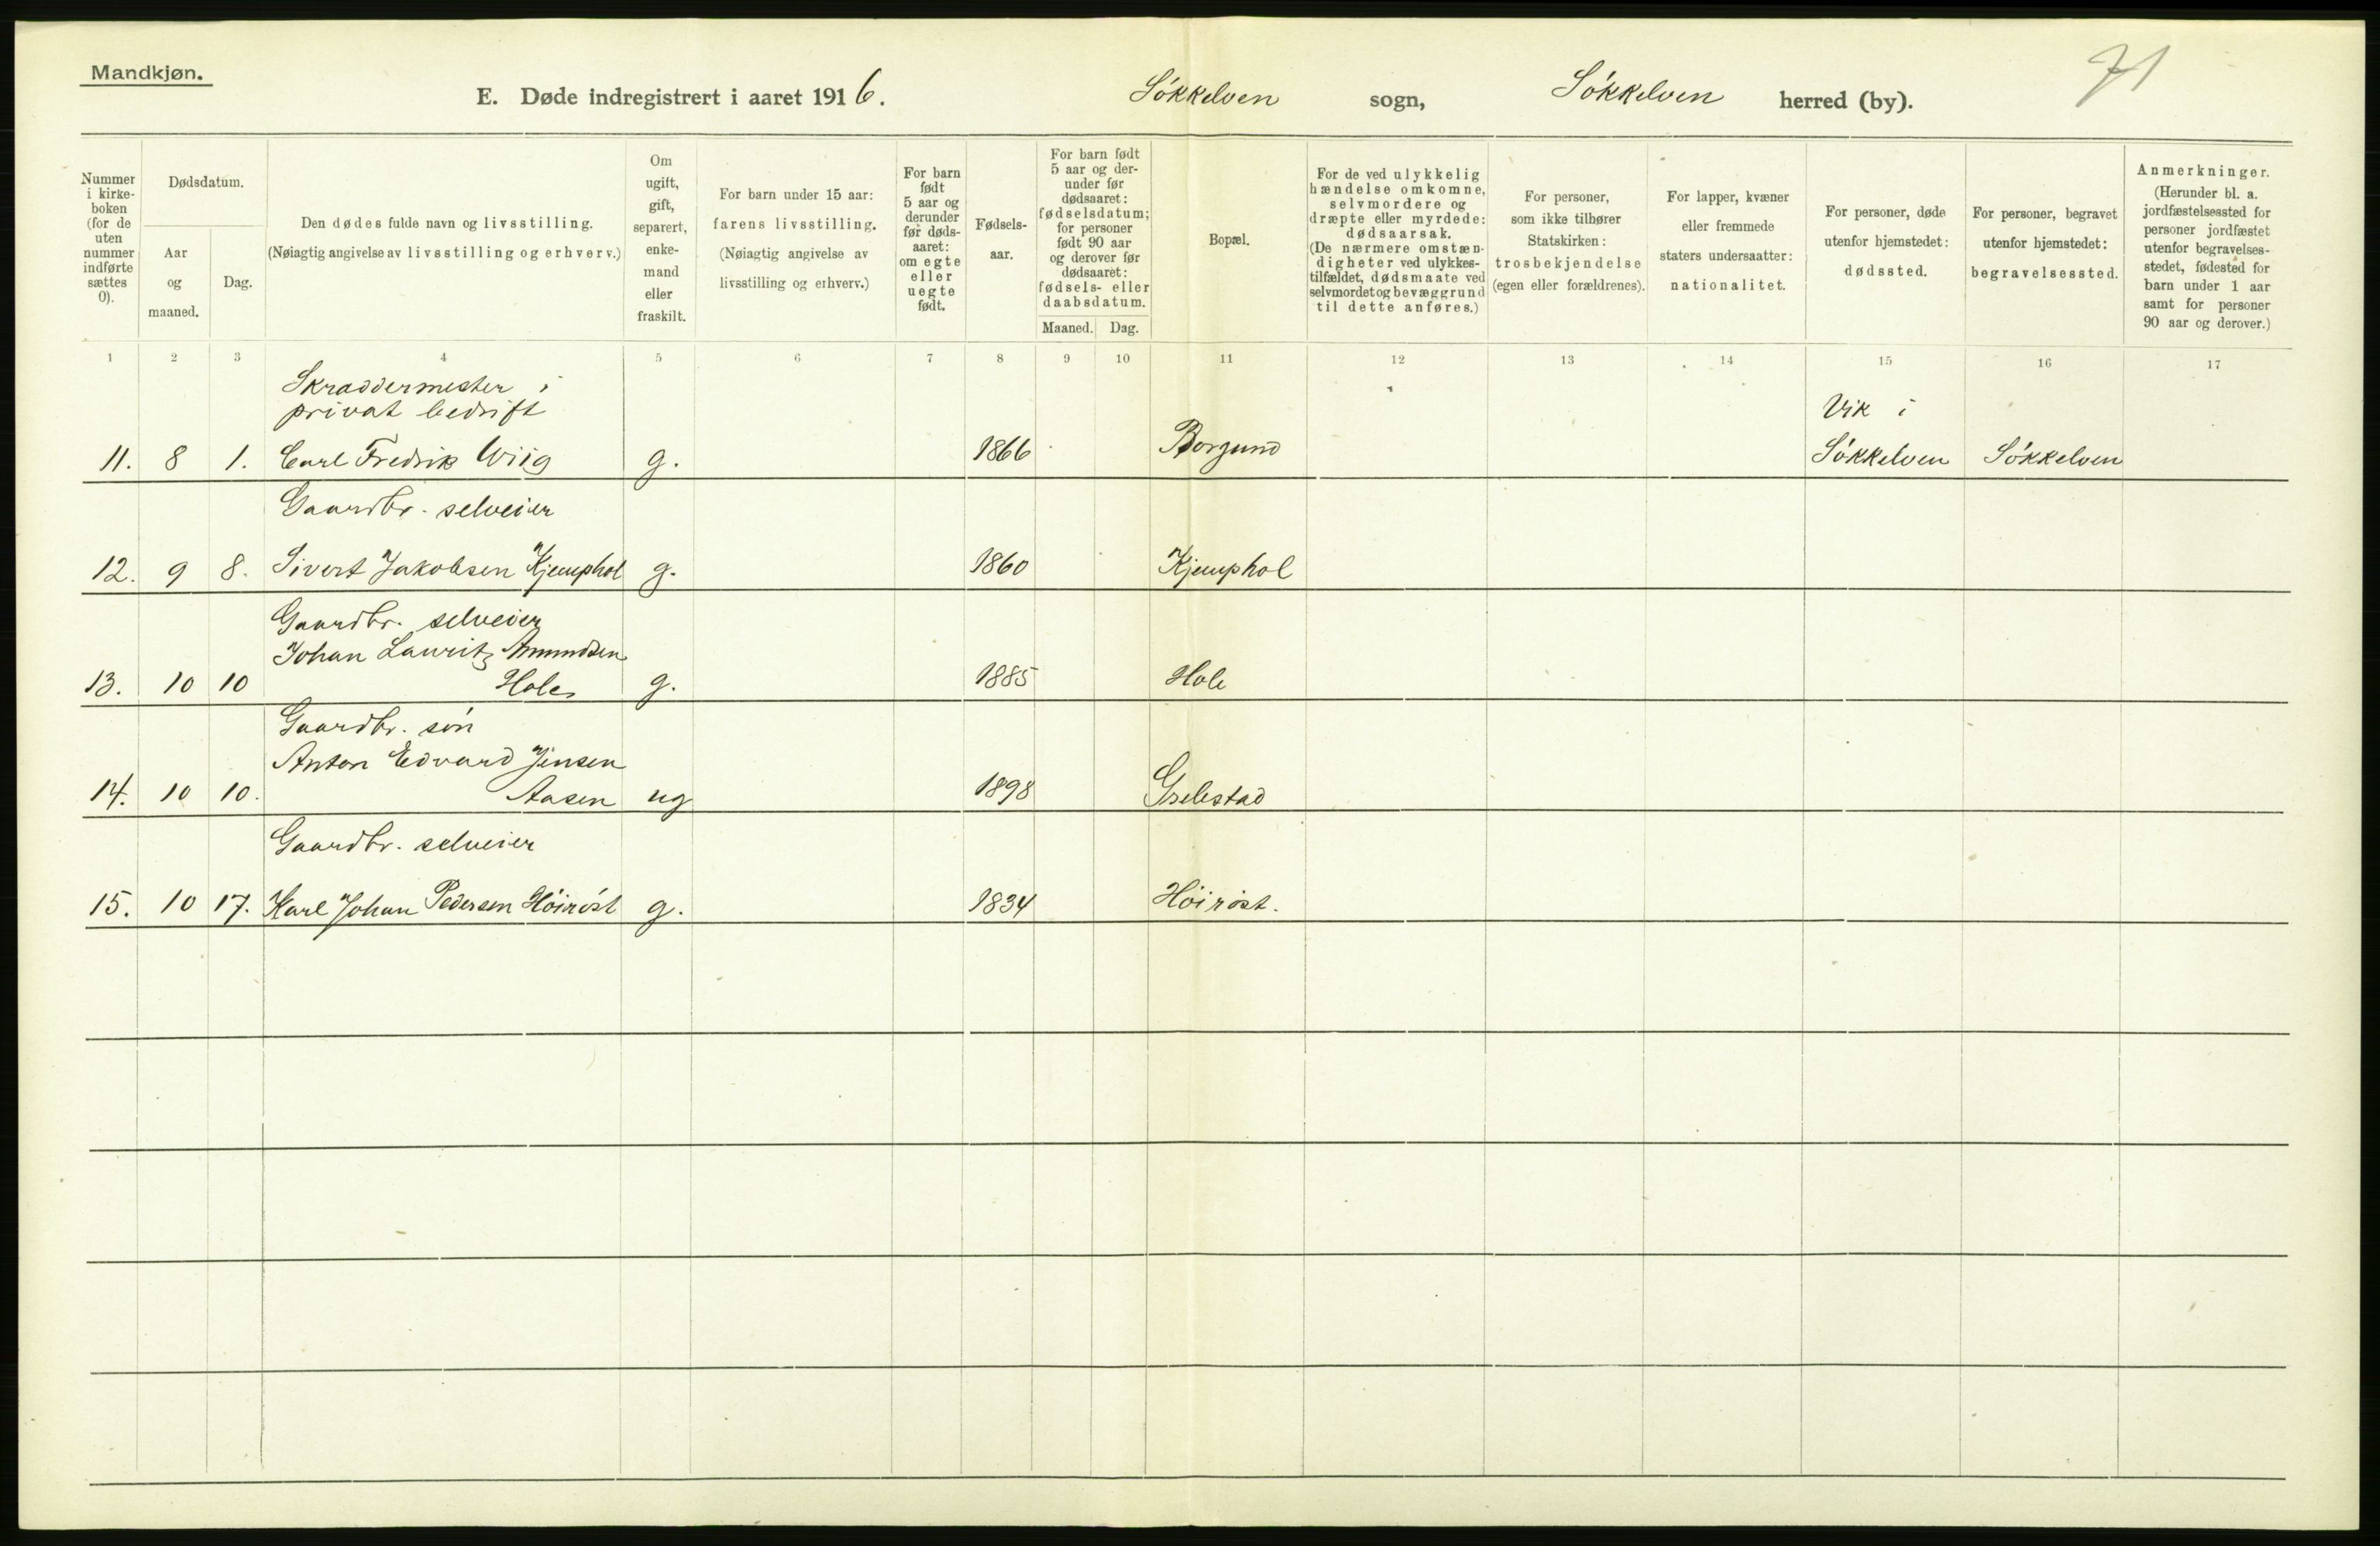 Mandkjøn.
71
E. Døde indregistrert i aaret 1916.
Søkkelven sogn,
Søkkelven herred (by).
Nummer
i kirke-
boken
(for de
uten
nummer
indførte
sættes
0).
Dødsdatum.
Aar
og
maaned.
Dag.
Den dødes fulde navn og livsstilling.
(Nøiagtig angivelse av livsstilling og erhverv.)
Om
ugift,
gift,
separert,
enke-
mand
eller
fraskilt.
For barn under 15 aar:
farens livsstilling.
(Nøiagtig angivelse av
livsstilling og erhverv.)
For barn
født
5 aar og
derunder
før døds-
aaret:
om egte
eller
uegte
født.
Fødsels-
aar.
For barn født
5 aar og der-
under før
dødsaaret:
fødselsdatum;
for personer
født 90 aar
og derover før
dødsaaret:
fødsels- eller
daabsdatum.
Maaned. Dag.
Bopæl.
For de ved ulykkelig
hændelse omkomne,
selvmordere og
dræpte eller myrdede:
dødsaarsak.
(De nærmere omstæn-
digheter ved ulykkes-
tilfældet, dødsmaate ved
selvmordet og bevæggrund
til dette anføres.)
For personer,
som ikke tilhører
Statskirken:
trosbekjendelse
(egen eller forældrenes).
For lapper, kvæner
eller fremmede
staters undersaatter:
nationalitet.
For personer, døde
utenfor hjemstedet:
dødssted.
For personer, begravet
utenfor hjemstedet:
begravelsessted.
Anmerkninger.
(Herunder bl. a.
jordfæstelsessted for
personer jordfæstet
utenfor begravelses-
stedet, fødested for
barn under 1 aar
samt for personer
90 aar og derover.)
1 2 3 4 5 6 7 8 9 10 11 12 13 14 15 16 17
Skraddermester i
privat bedrift
Vik i
11. 8 1. Carl Fredrik Wiig g. 1866 Borgund Søkkelven Søkkelven
Gaardbr. selveier
12. 9 8. Sivert Jakobsen Kjemphol g. 1860 Kjemphol
Gaardbr. selveier
Johan Lauritz Amundsen
13. 10 10 Hole g. 1885 Hole
Gaardbr. søn
Anton Edvard Jensen
14. 10 10. Aasen ug 1898 Grebstad
Gaardbr. selveier
15. 10 17. Karl Johan Pedersen Höiröst g. 1834 Höiröst.